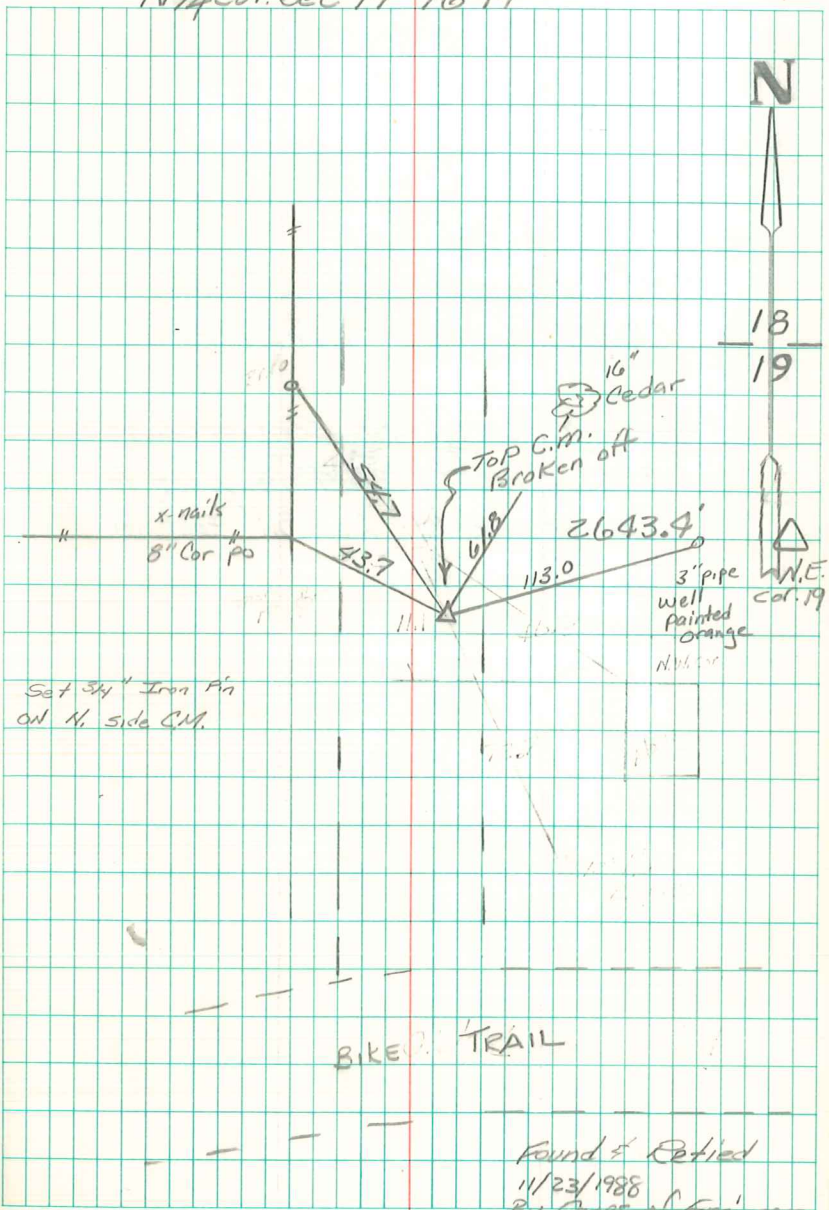 N
18
19
16"
Cedar
Top C.M.
Broken off
54.7
61.8
2643.4'
x-nails
8" Cor po
43.7
113.0
3" pipe
well
painted
orange
N.E.
cor. 19
Set 3/4" Iron Pin
ON N. side C.M.
BIKE TRAIL
Found & Retied
11/23/1988